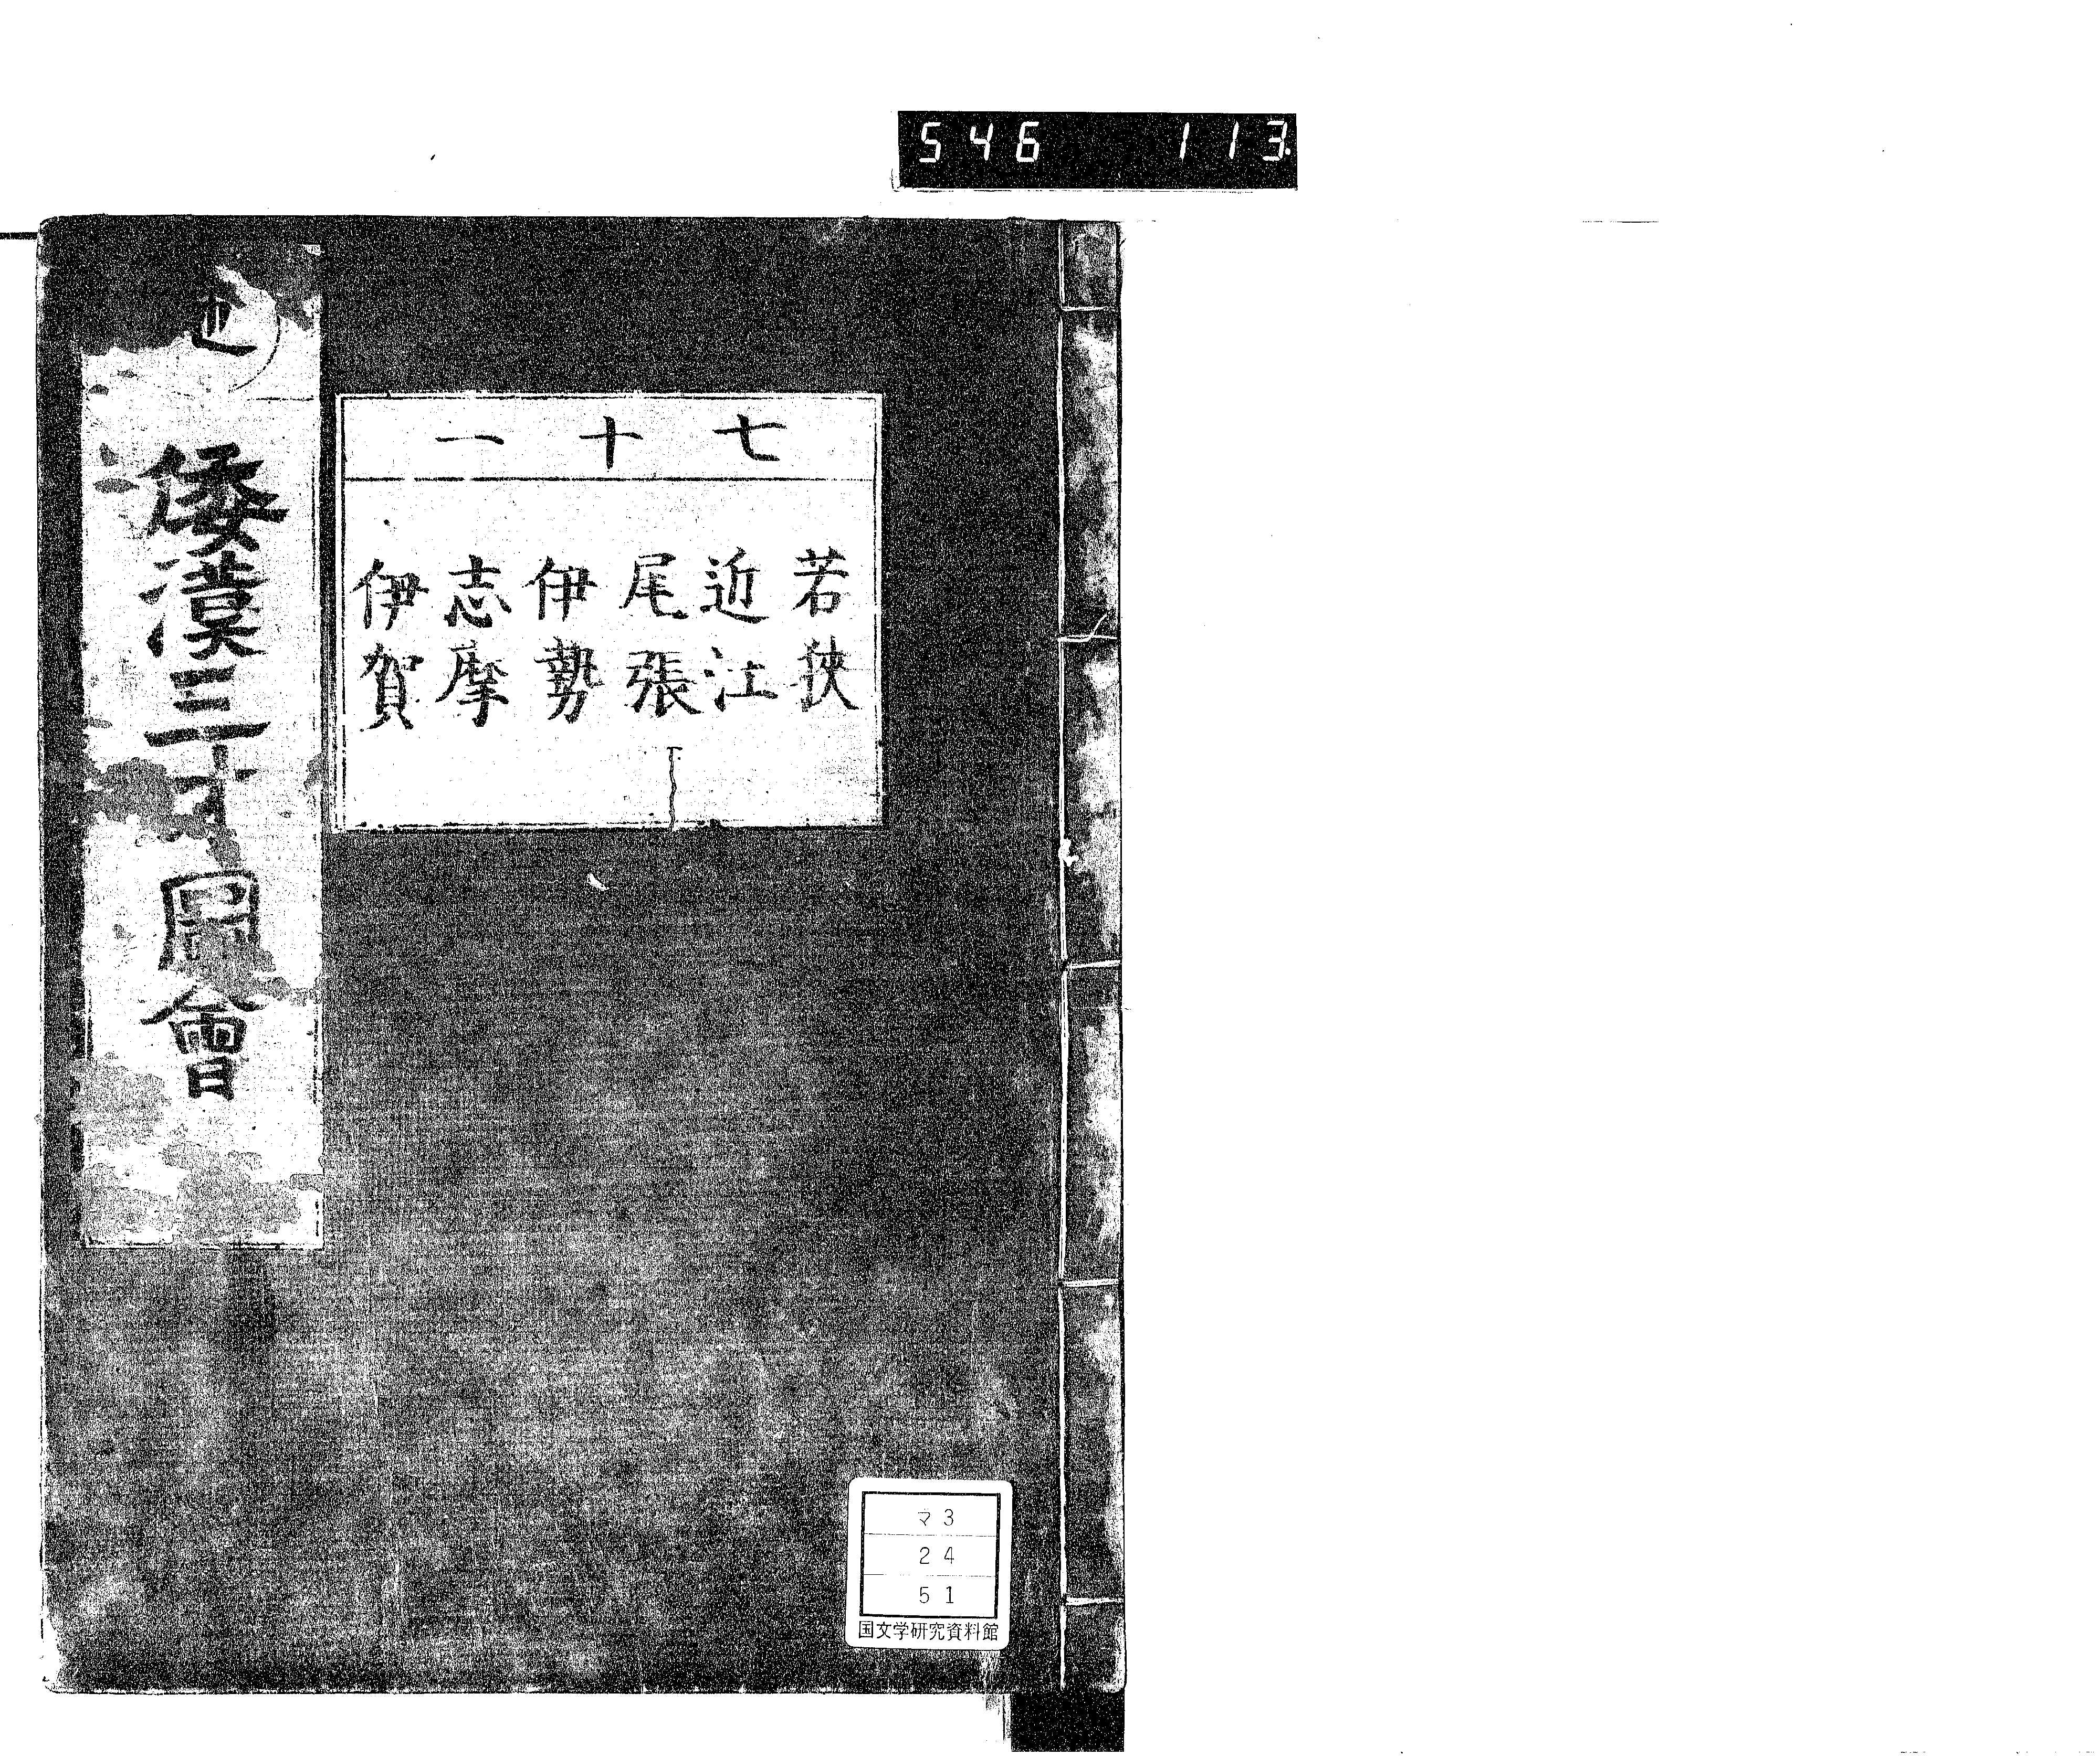 546 113
七十一
若狭
近江
尾張
伊勢
志摩
伊賀
倭漢三才圖會
マ3
24
51
国文学研究資料館